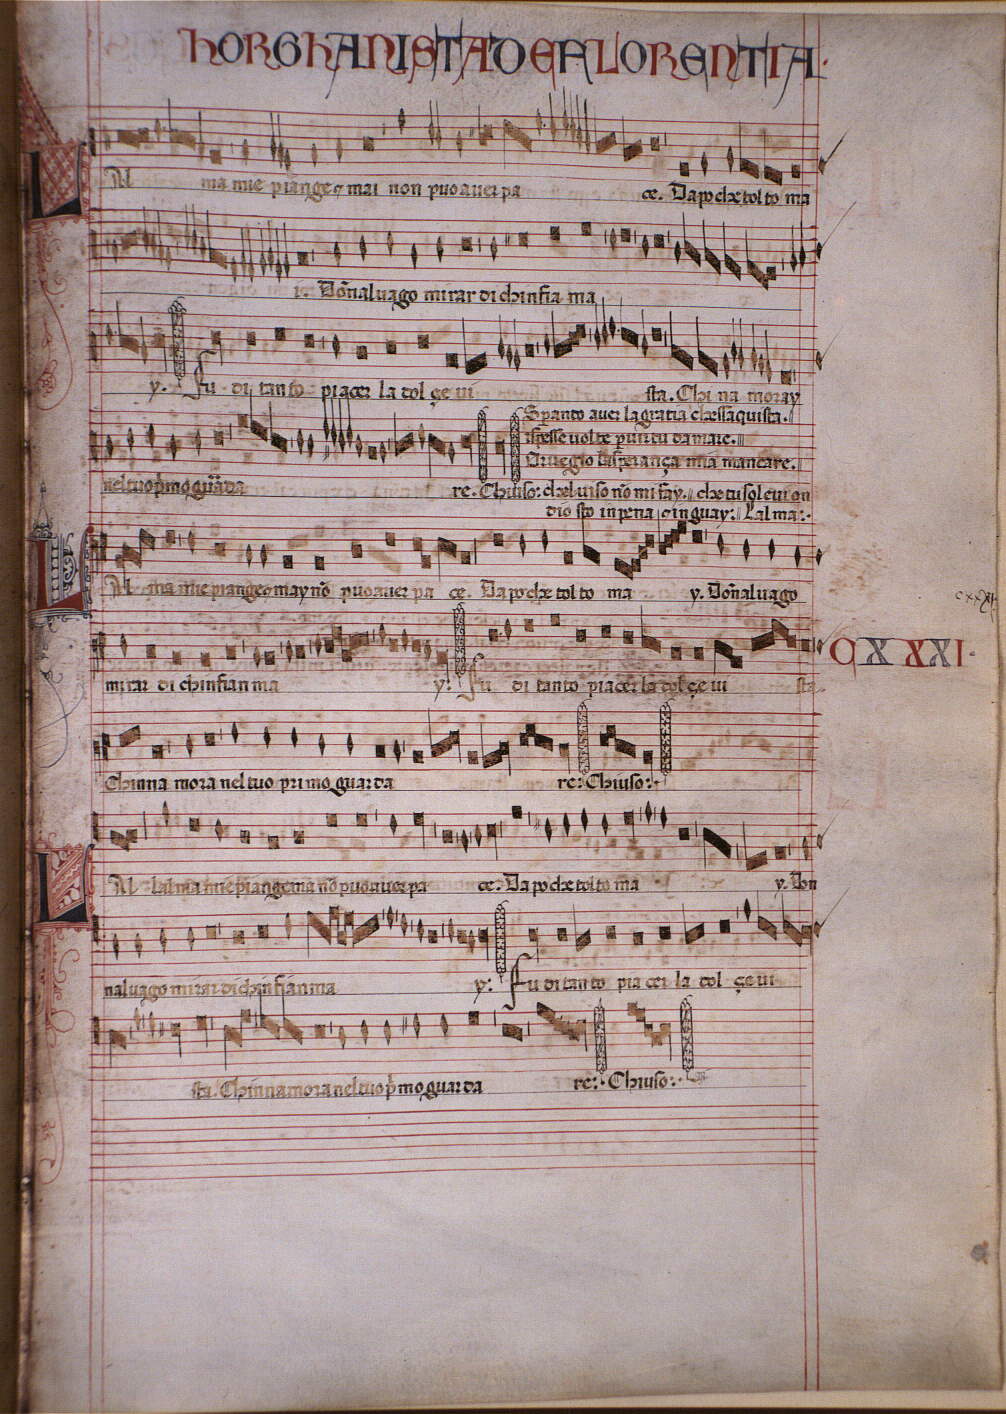 HORGHANISTA DE FLORENTIA.
LAl ma mie piange & mai non puo auer pa ce. Da po che tolto ma
i. Dōna l uago mirar di chin fia ma
y. Fu di tanto piacer la tol çe ui sta. Chi na moray
Speranto auer la gratia chessaquista.
ispesse uolte
nel tuo p̄mo guarda re. Chiuso: chel uiso nō mi fay. che tu sol
dio sto in pena & in guay: Lalma:.
LAl ma mie piange & may nō puo auer pa ce. Da po che tol to ma y. Dōna l uago
cxxxi
CXXXI.
mirar di chinfian ma y: Fu di tanto piacer la dol çe ui sta.
Chinna mora nel tuo primo guarda re: Chiuso:.
LAl lalma mie piange ma nō puo auer pa ce. Da po che tol to ma y. Don
nal uago mirar di chin fian ma y: Fu di tanto pia cer la tol çe ui
sta. Chinnamora nel tuo p̄mo guarda re:. Chiuso:.